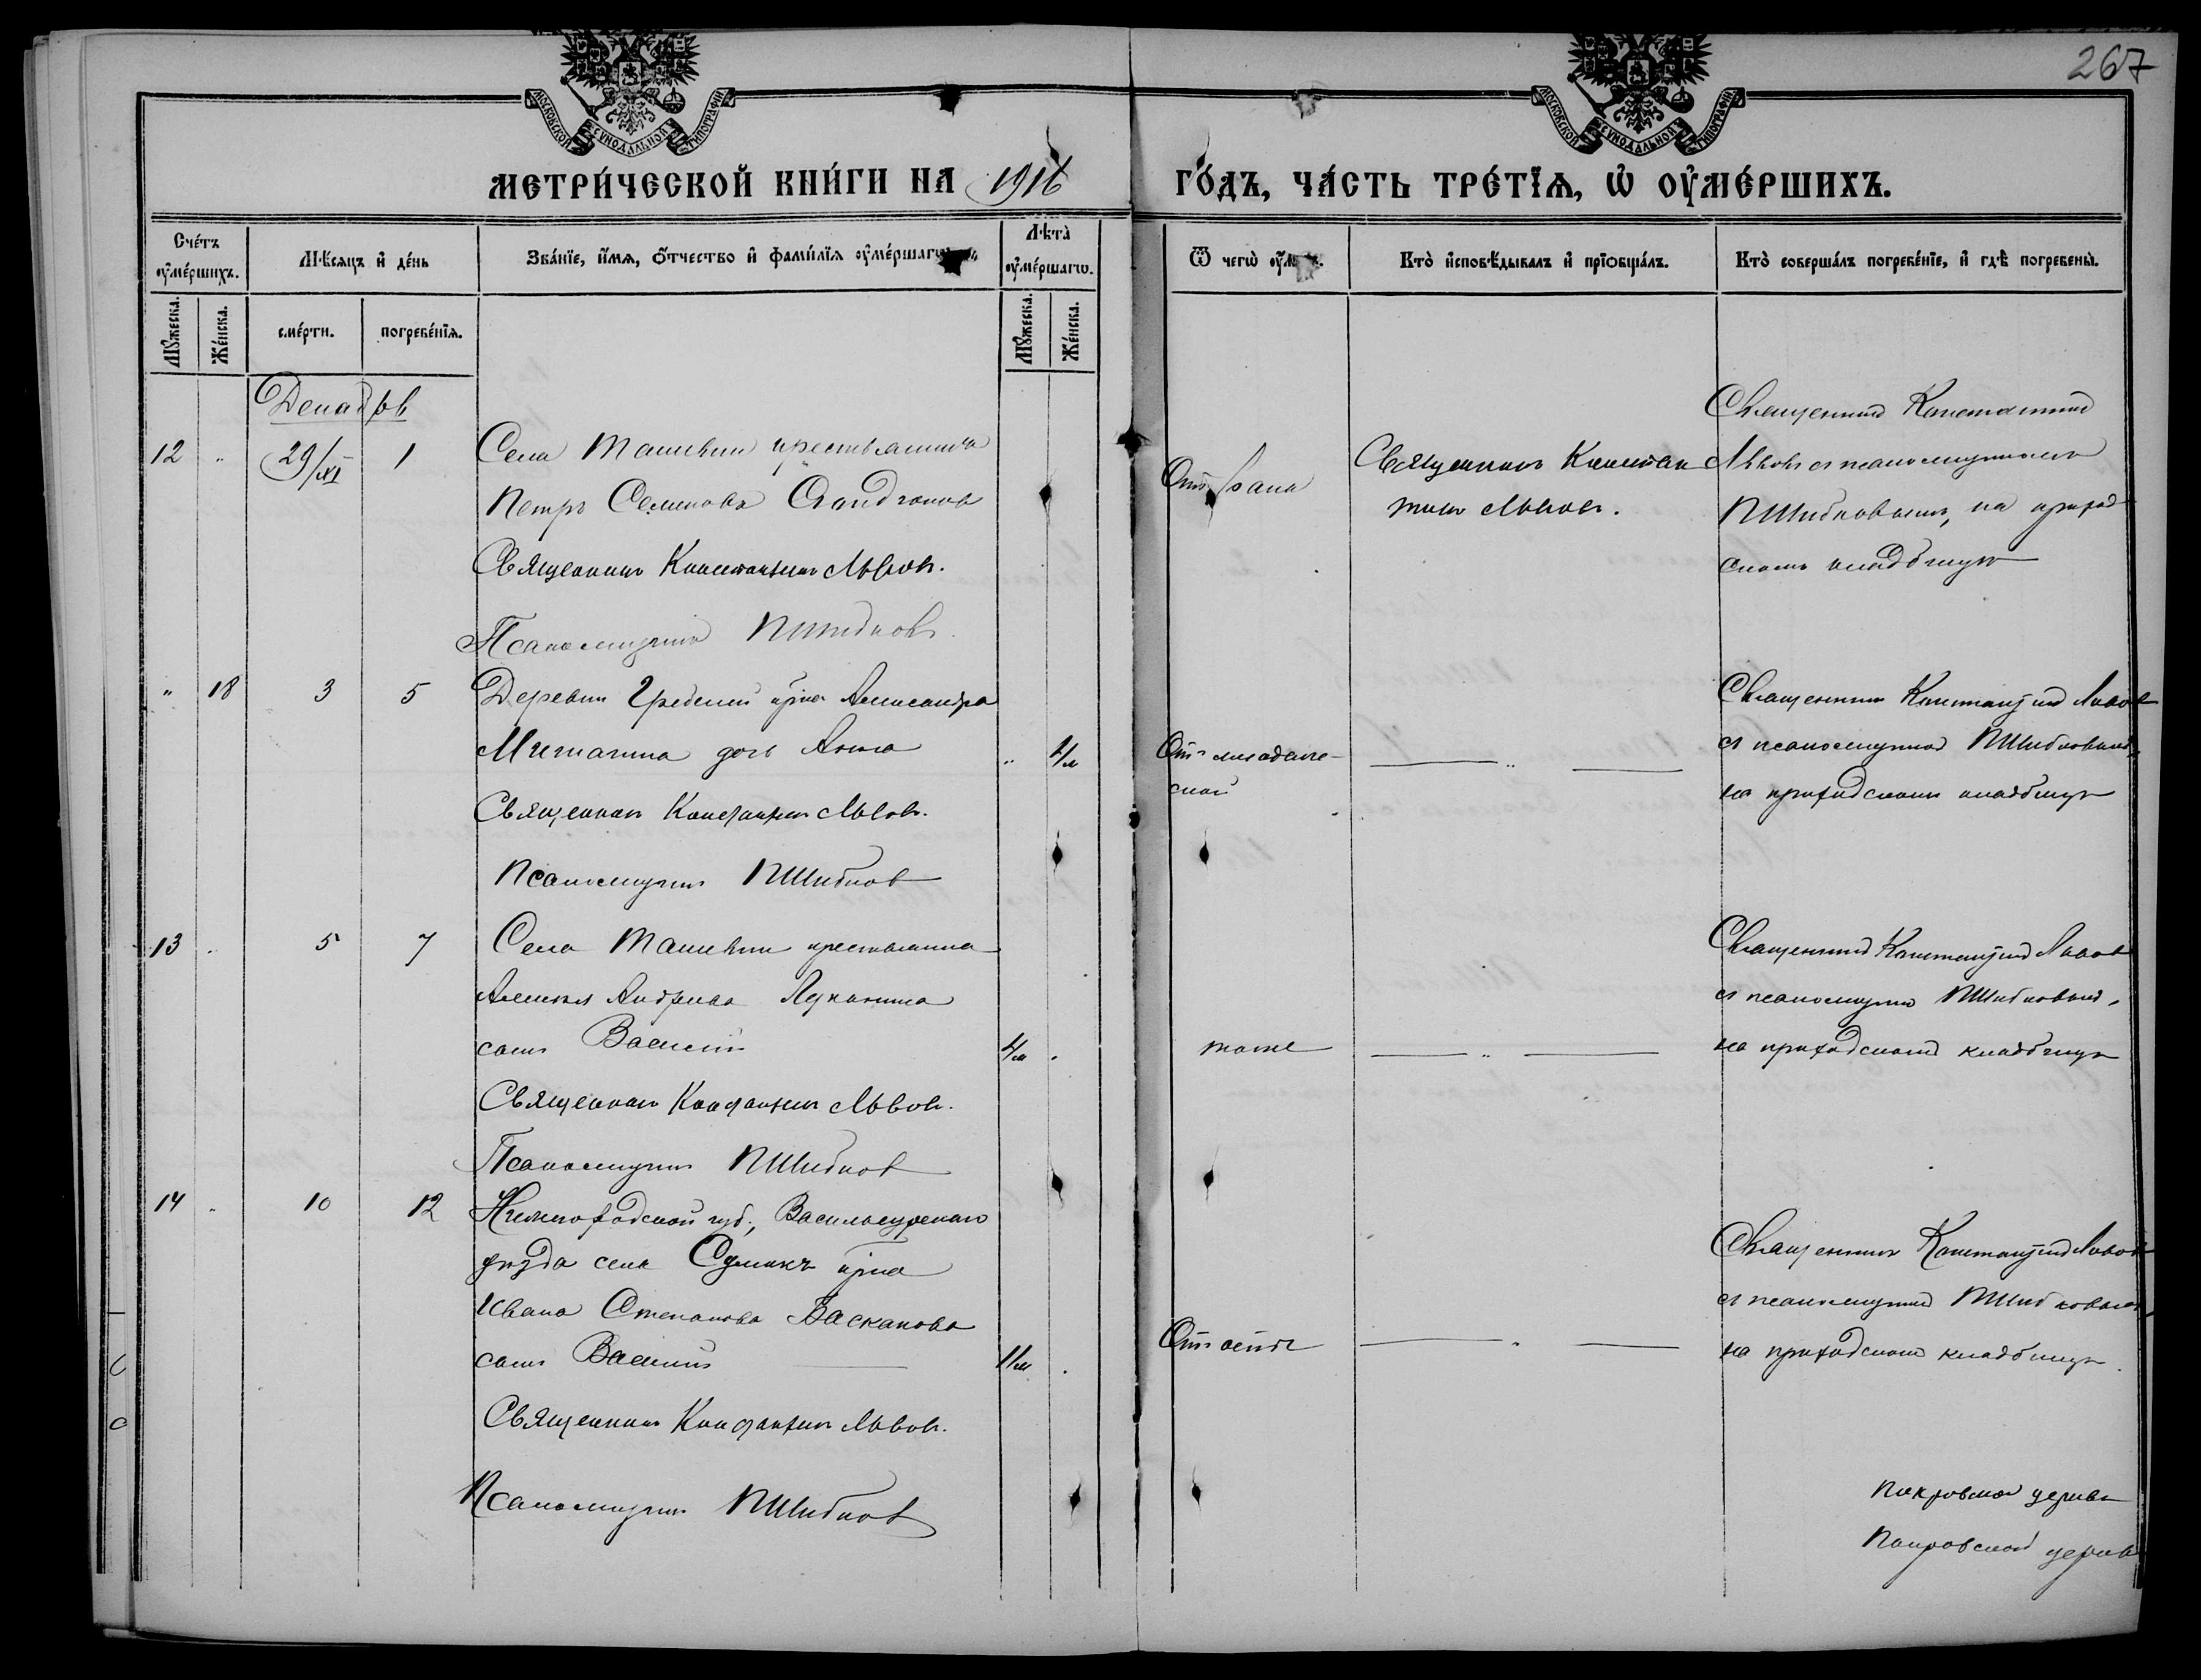 267
МОСКОВСКОЙ СѴНОДАЛЬНОЙ ТИПОГРАФІИ
МОСКОВСКОЙ СѴНОДАЛЬНОЙ ТИПОГРАФІИ
МЕТРИ́ЧЕСКОЙ КНИ́ГИ НА 1916
ГО́ДЪ, ЧА́СТЬ ТРЕ́ТЇѦ, Ѽ ОУ҆МЕ́РШИХЪ.
Сче́тъ оу҆ме́ршихъ.
Мѣ́сѧцъ и҆ де́нь
Зва́нїе, и҆́мѧ, ѻ҆́тчество и҆ фами́лїѧ оу҆ме́ршагѡ
Лѣта̀ оу҆ме́ршагѡ.
Мꙋ́жеска.
Же́нска.
сме́рти.
погребе́нїѧ.
Мꙋ́жеска.
Же́нска.
Ѿ чегѡ̀
Кто̀ и҆сповѣ́дывалъ и҆ прїѡбща́лъ.
Кто̀ соверша́лъ погребе́нїе, и҆ гдѣ̀ погребены̀.
Декабрь
12 " 29/XI 1
Села Ташевки крестьянинъ
Петръ Семеновъ
Священникъ Константинъ Львовъ.
Псаломщикъ ПШибковъ
Священникъ Констан
тинъ Львовъ.
Священникъ Константинъ
Львовъ съ псаломщикомъ
ПШибковымъ, на приход
скомъ кладбищѣ
" 18 3 5
Деревни Гребеней кр-на Александра
дочь Анна
Священникъ Константинъ Львовъ.
Псаломщикъ ПШибковъ
Отъ младенче-
ской
Священникъ Константинъ Львовъ
съ псаломщикомъ ПШибковымъ,
на приходскомъ кладбищѣ
13 " 5 7
Села Ташевки крестьянина
Алексѣя Андреева Луканина
сынъ Василій
Священникъ Константинъ Львовъ.
Псаломщикъ ПШибковъ
тоже
Священникъ Константинъ Львовъ
съ псаломщикомъ ПШибковымъ,
на приходскомъ кладбищѣ
14 " 10 12
Нижегородской губ., Васильсурскаго
уѣзда села кр-на
Ивана Степанова Басканова
сынъ Василій
Священникъ Константинъ Львовъ.
Псаломщикъ ПШибковъ
Отъ оспы
Священникъ Константинъ Львовъ
съ псаломщикомъ ПШибковымъ,
на приходскомъ кладбищѣ.
Покровской церкви
Покровской церкви